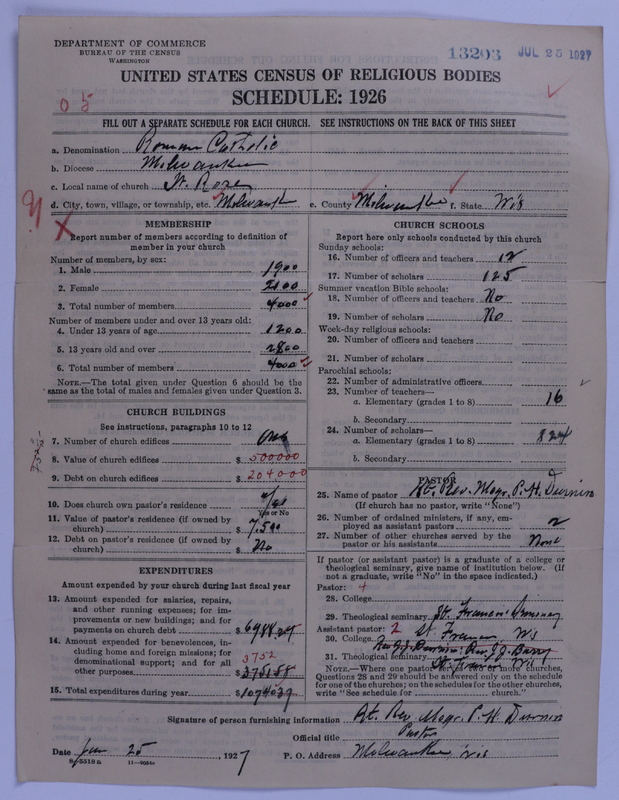 DEPARTMENT OF COMMERCE
BUREAU OF THE CENSUS
WASHINGTON
13203 JUL 25 1927
UNITED STATES CENSUS OF RELIGIOUS BODIES
SCHEDULE: 1926
0 5
FILL OUT A SEPARATE SCHEDULE FOR EACH CHURCH. SEE INSTRUCTIONS ON THE BACK OF THIS SHEET
a. Denomination Roman Catholic
b. Diocese Milwaukee
c. Local name of church St. Rose
d. City, town, village, or township, etc. Milwaukee e. County Milwaukee f. State Wis
MEMBERSHIP
Report number of members according to definition of
member in your church
Number of members, by sex:
1. Male 1900
2. Female 2100
3. Total number of members 4000
Number of members under and over 13 years old:
4. Under 13 years of age 1200
5. 13 years old and over 2800
6. Total number of members 4000
NOTE.—The total given under Question 6 should be
same as the total of males and females given under Question 3.
CHURCH BUILDINGS
See instructions, paragraphs 10 to 12
7. Number of church edifices One
8. Value of church edifices $ 500000
9. Debt on church edifices $ 204000
10. Does church own pastor's residence Yes
Yes or No
11. Value of pastor's residence (if owned by
church) $ 7,500
12. Debt on pastor's residence (if owned by
church) $ No
EXPENDITURES
Amount expended by your church during last fiscal year
13. Amount expended for salaries, repairs,
and other running expenses; for im-
provements or new buildings; and for
payments on church debt $
14. Amount expended for benevolences, in-
cluding home and foreign missions; for
denominational support; and for all
other purposes $
3752
15. Total expenditures during year $
CHURCH SCHOOLS
Report here only schools conducted by this church
Sunday schools:
16. Number of officers and teachers 12
17. Number of scholars 125
Summer vacation Bible schools:
18. Number of officers and teachers No
19. Number of scholars No
Week-day religious schools:
20. Number of officers and teachers
21. Number of scholars
Parochial schools:
22. Number of administrative officers
23. Number of teachers—
a. Elementary (grades 1 to 8) 16
b. Secondary
24. Number of scholars—
a. Elementary (grades 1 to 8) 824
b. Secondary
PASTOR
25. Name of pastor Rt. Rev. Msgr. P. H. Durnin
(If church has no pastor, write "None")
26. Number of ordained ministers, if any, em-
ployed as assistant pastors 2
27. Number of other churches served by the
pastor or his assistants None
If pastor (or assistant pastor) is a graduate of a college or
theological seminary, give name of institution below. (If
not a graduate, write "No" in the space indicated.)
Pastor: 4
28. College
29. Theological seminary St. Francis Seminary
Assistant pastor: 2 St. Francis, Wis
30. College
31. Theological seminary St. Francis Wis
NOTE.—Where one pastor serves two or more churches,
Questions 28 and 29 should be answered only on the schedule
for one of the churches; on the schedules for the other churches,
write "See schedule for church."
Signature of person furnishing information Rt. Rev. Msgr. P. H. Durnin
Official title Pastor
Date 25, 1927 P. O. Address Milwaukee, Wis